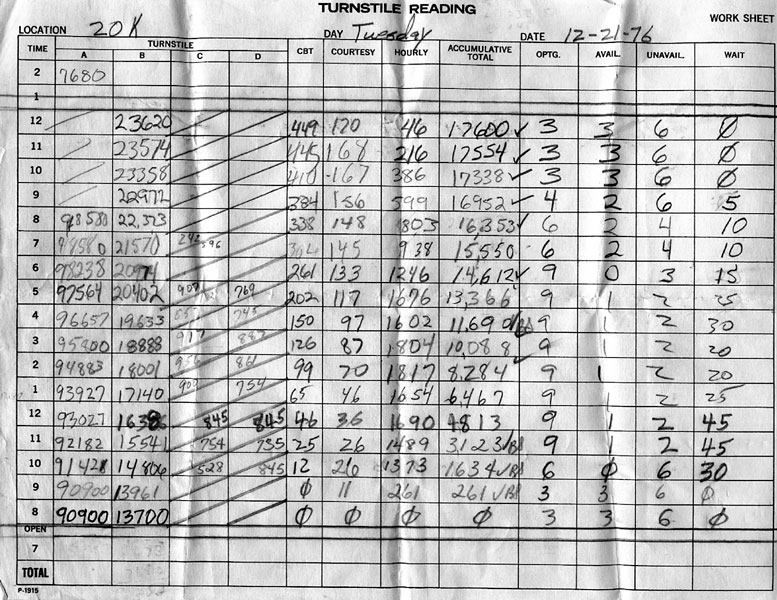 TURNSTILE READING
WORK SHEET
LOCATION 20K DAY Tuesday DATE 12-21-76
TIME TURNSTILE CBT COURTESY HOURLY ACCUMULATIVE TOTAL OPTG. AVAIL. UNAVAIL. WAIT
A B C D
2 7680
1
12 23620 449 170 46 17600 ✓ 3 3 6 Ø
11 23574 445 168 216 17554 ✓ 3 3 6 Ø
10 23358 167 386 17338 ✓ 3 3 6 Ø
9 22972 384 156 599 16952 ✓ 4 2 6 5
8 98580 22,373 338 148 1803 16,353 ✓ 6 2 4 10
7 21570 145 938 15,550 6 2 4 10
6 98238 20974 261 133 1246 14,612 ✓ 9 0 3 15
5 97564 20402 908 769 202 117 1676 13,366 9 1 2 25
4 96657 19633 745 150 97 1602 11,690 9 1 2 30
3 95800 18888 917 887 126 87 1804 10,088 9 1 2 20
2 94883 18001 956 861 99 70 1817 8,284 ✓ 9 1 2 20
1 93927 17140 900 754 65 46 1654 6,467 9 1 2 25
12 93027 16386 845 845 46 36 1690 4813 9 1 2 45
11 92182 15541 754 735 25 26 1489 3,123 ✓ 9 1 2 45
10 91428 14806 528 845 12 26 1373 1634 ✓ 6 Ø 6 30
9 90900 13961 Ø 11 261 261 ✓ 3 3 6 Ø
8 90900 13700 Ø Ø Ø Ø 3 3 6 Ø
OPEN
7
TOTAL
P-1915